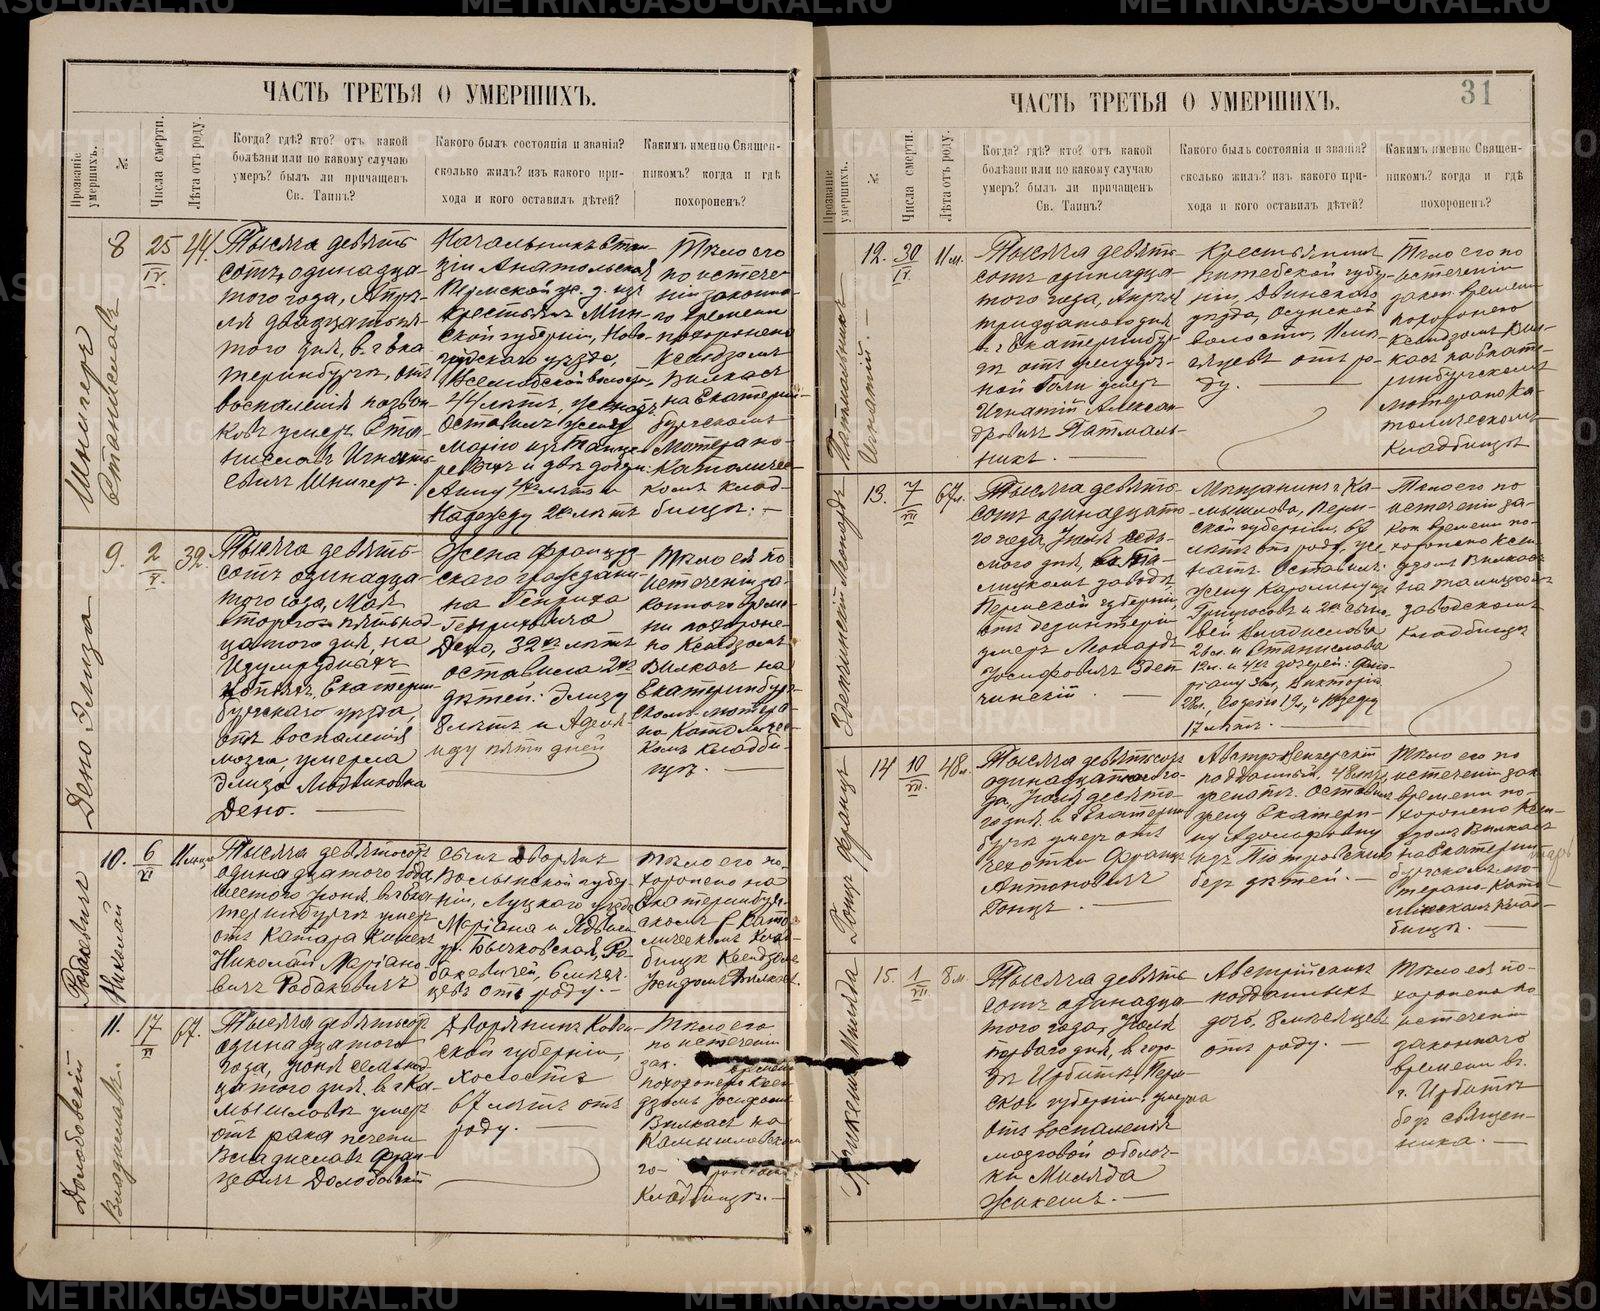 ЧАСТЬ ТРЕТЬЯ О УМЕРШИХЪ.
Прозваніе умершихъ.
№
Числа смерти.
Лѣта отъ роду.
Когда? гдѣ? кто? отъ какой
болѣзни или по какому случаю
умеръ? былъ ли причащенъ
Св. Таинъ?
Какого былъ состоянія и званія?
сколько жилъ? изъ какого при-
хода и кого оставилъ дѣтей?
Какимъ именно Священ-
никомъ? когда и гдѣ
похороненъ?
Шнигеръ
Станиславъ
8
25
IV.
44.
Тысяча девять
сотъ одинадца-
того года, Апрѣ-
ля двадцать пя-
того дня, в г. Ека
теринбургѣ, отъ
воспаленія позвон-
ковъ умеръ Ста-
ниславъ Игнать-
евичъ Шнигеръ.
Начальникъ Стан-
ціи Анатольская
Пермской ж. д. изъ
крестьянъ Мин-
ской губерніи, Ново-
грудскаго уѣзда,
44 лѣтъ, женатъ
Оставилъ жену
Марію изъ
и двѣ дочери:
Анну 4хъ лѣтъ и
Надежду 2хъ лѣтъ
Тѣло его
по истече-
ніи законна-
го времени
похоронено
Ксендзомъ
Вилкасъ
на Екатерин-
бургскомъ
Ѡ Римско
Католичес-
комъ клад-
бищѣ. —
Дено Элиза
9.
2
V.
32.
Тысяча девять-
сотъ одинадца-
того года, Мая
второго
дня, на
Изумрудныхъ
копяхъ, Екатерин-
бургскаго уѣзда,
отъ воспаленія
мозга, умерла
Элиза Людвиковна
Дено. —
Жена француз-
скаго граждани-
на Генриха
Генриховича
Дено, 32хъ лѣтъ
оставила 2хъ
дѣтей: Элизу
8 лѣтъ и
пяти дней
Тѣло ея по
истеченіи за-
коннаго време-
ни похороне-
но Ксендзомъ
Вилкасъ на
Екатеринбург-
скомъ
Католичес-
комъ кладби-
щѣ. —
Рабакевичъ
Николай
10.
6
VI
Тысяча девятьсотъ
одинадцатого года,
шестого Іюня, в г. Ека
теринбургѣ умеръ
отъ Катара Кишекъ
Николай Маріано-
вичъ Рабакевичъ
Сынъ дворянъ
Волынской губер-
ніи, Луцкаго уѣзда
Маріана и Ядвиги
ур. Бычковской, Ра-
бакевичей, 6 мѣся-
цевъ отъ роду. —
Тѣло его по-
хоронено на
Екатеринбург-
скомъ Като-
лическомъ клад-
бищѣ Ксендзомъ
Іосифомъ Вилкасъ.
Долобовскій
Владиславъ.
11.
17
VI
67.
Тысяча девятьсотъ
одинадцатого
года, Іюня семнад-
цатого дня, в г. Ка-
мышловѣ умеръ
отъ рака печени
Владиславъ Фран-
цевичъ Долобовскій
Дворянинъ Ковен-
ской губерніи,
холостъ
67 лѣтъ отъ
роду. —
Тѣло его
по истеченіи
зак. времени
похоронено Ксен-
дзомъ Іосифомъ
Вилкасъ на
Камышловском
го-
родском
Кладбищѣ. —
31
ЧАСТЬ ТРЕТЬЯ О УМЕРШИХЪ.
Прозваніе умершихъ.
№
Числа смерти.
Лѣта отъ роду.
Когда? гдѣ? кто? отъ какой
болѣзни или по какому случаю
умеръ? былъ ли причащенъ
Св. Таинъ?
Какого былъ состоянія и званія?
сколько жилъ? изъ какого при-
хода и кого оставилъ дѣтей?
Какимъ именно Священ-
никомъ? когда и гдѣ
похороненъ?
Патмальникъ
Игнатій. —
12.
30
IV.
11 м.
Тысяча девять-
сотъ одинадца-
того года, Апрѣля
тридцатого дня
в г. Екатеринбур-
гѣ отъ
умеръ
Игнатій Алексан-
дровичъ Патмаль-
никъ. —
Крестьянинъ
Витебской губер-
ніи, Двинскаго
уѣзда, Осунской
волости, 11 мѣ-
сяцевъ отъ ро-
ду. —
Тѣло его по
истеченіи
закон. времени
похоронено
Ксендзомъ Вил-
касъ на Екате-
ринбургскомъ
Ка-
толическомъ
Кладбищѣ
Здетчинскій Леонардъ
13.
7
VII
67 л.
Тысяча девять-
сотъ одинадцато-
го года, Іюля седь-
мого дня, въ Та-
лицкомъ заводѣ,
Пермской губерніи,
отъ дезинтеріи
умеръ Леонардъ
Іосифовичъ Здет
чинскій. —
Мѣщанинъ г. Ка-
мышлова, Перм-
ской губерніи, 67
лѣтъ отъ роду, же-
натъ. Оставилъ
жену Каролину
и 2хъ сыно-
вей Владислава
26 л. и Станислава
12 л. и 4хъ дочерей:
Викторію
Софію 19 л., и
17 лѣтъ. —
Тѣло его по
истеченіи за-
кон. времени по-
хоронено Ксен-
дзомъ Вилкасъ
на Талицкомъ
заводскомъ
кладбищѣ
Гонцъ Францъ
14
10
VII.
48 л.
Тысяча девятьсотъ
одинадцатого го-
да, Іюля десято-
го дня в г. Екатерин
бургѣ умеръ отъ
чехотки Францъ
Антоновичъ
Гонцъ. —
Австро-Венгерскій
подданный, 48 лѣтъ,
женатъ. Оставилъ
жену Екатери-
ну Адольфовну
изъ Піотровскихъ
безъ дѣтей. —
Тѣло его по
истеченіи зак.
времени по-
хоронено Ксен-
дзомъ Вилкасъ
на Екатерин-
бургскомъ
Като-
лическомъ Клад-
бищѣ. —
Жикешъ Миляда
15.
1
VII.
8 м.
Тысяча девять
сотъ одинадца-
того года, Іюля
перваго дня, в горо-
дѣ Ирбитѣ, Перм-
ской губерніи умерла
отъ воспаленія
мозговой оболоч-
ки Миляда
Жикешъ. —
Австрійскихъ
подданныхъ
дочь, 8 мѣсяцевъ
отъ роду. —
Тѣло ея по-
хоронено по
истеченіи
законнаго
времени въ
г. Ирбитѣ
безъ священ-
ника. —
METRIKI.GASO-URAL.RU